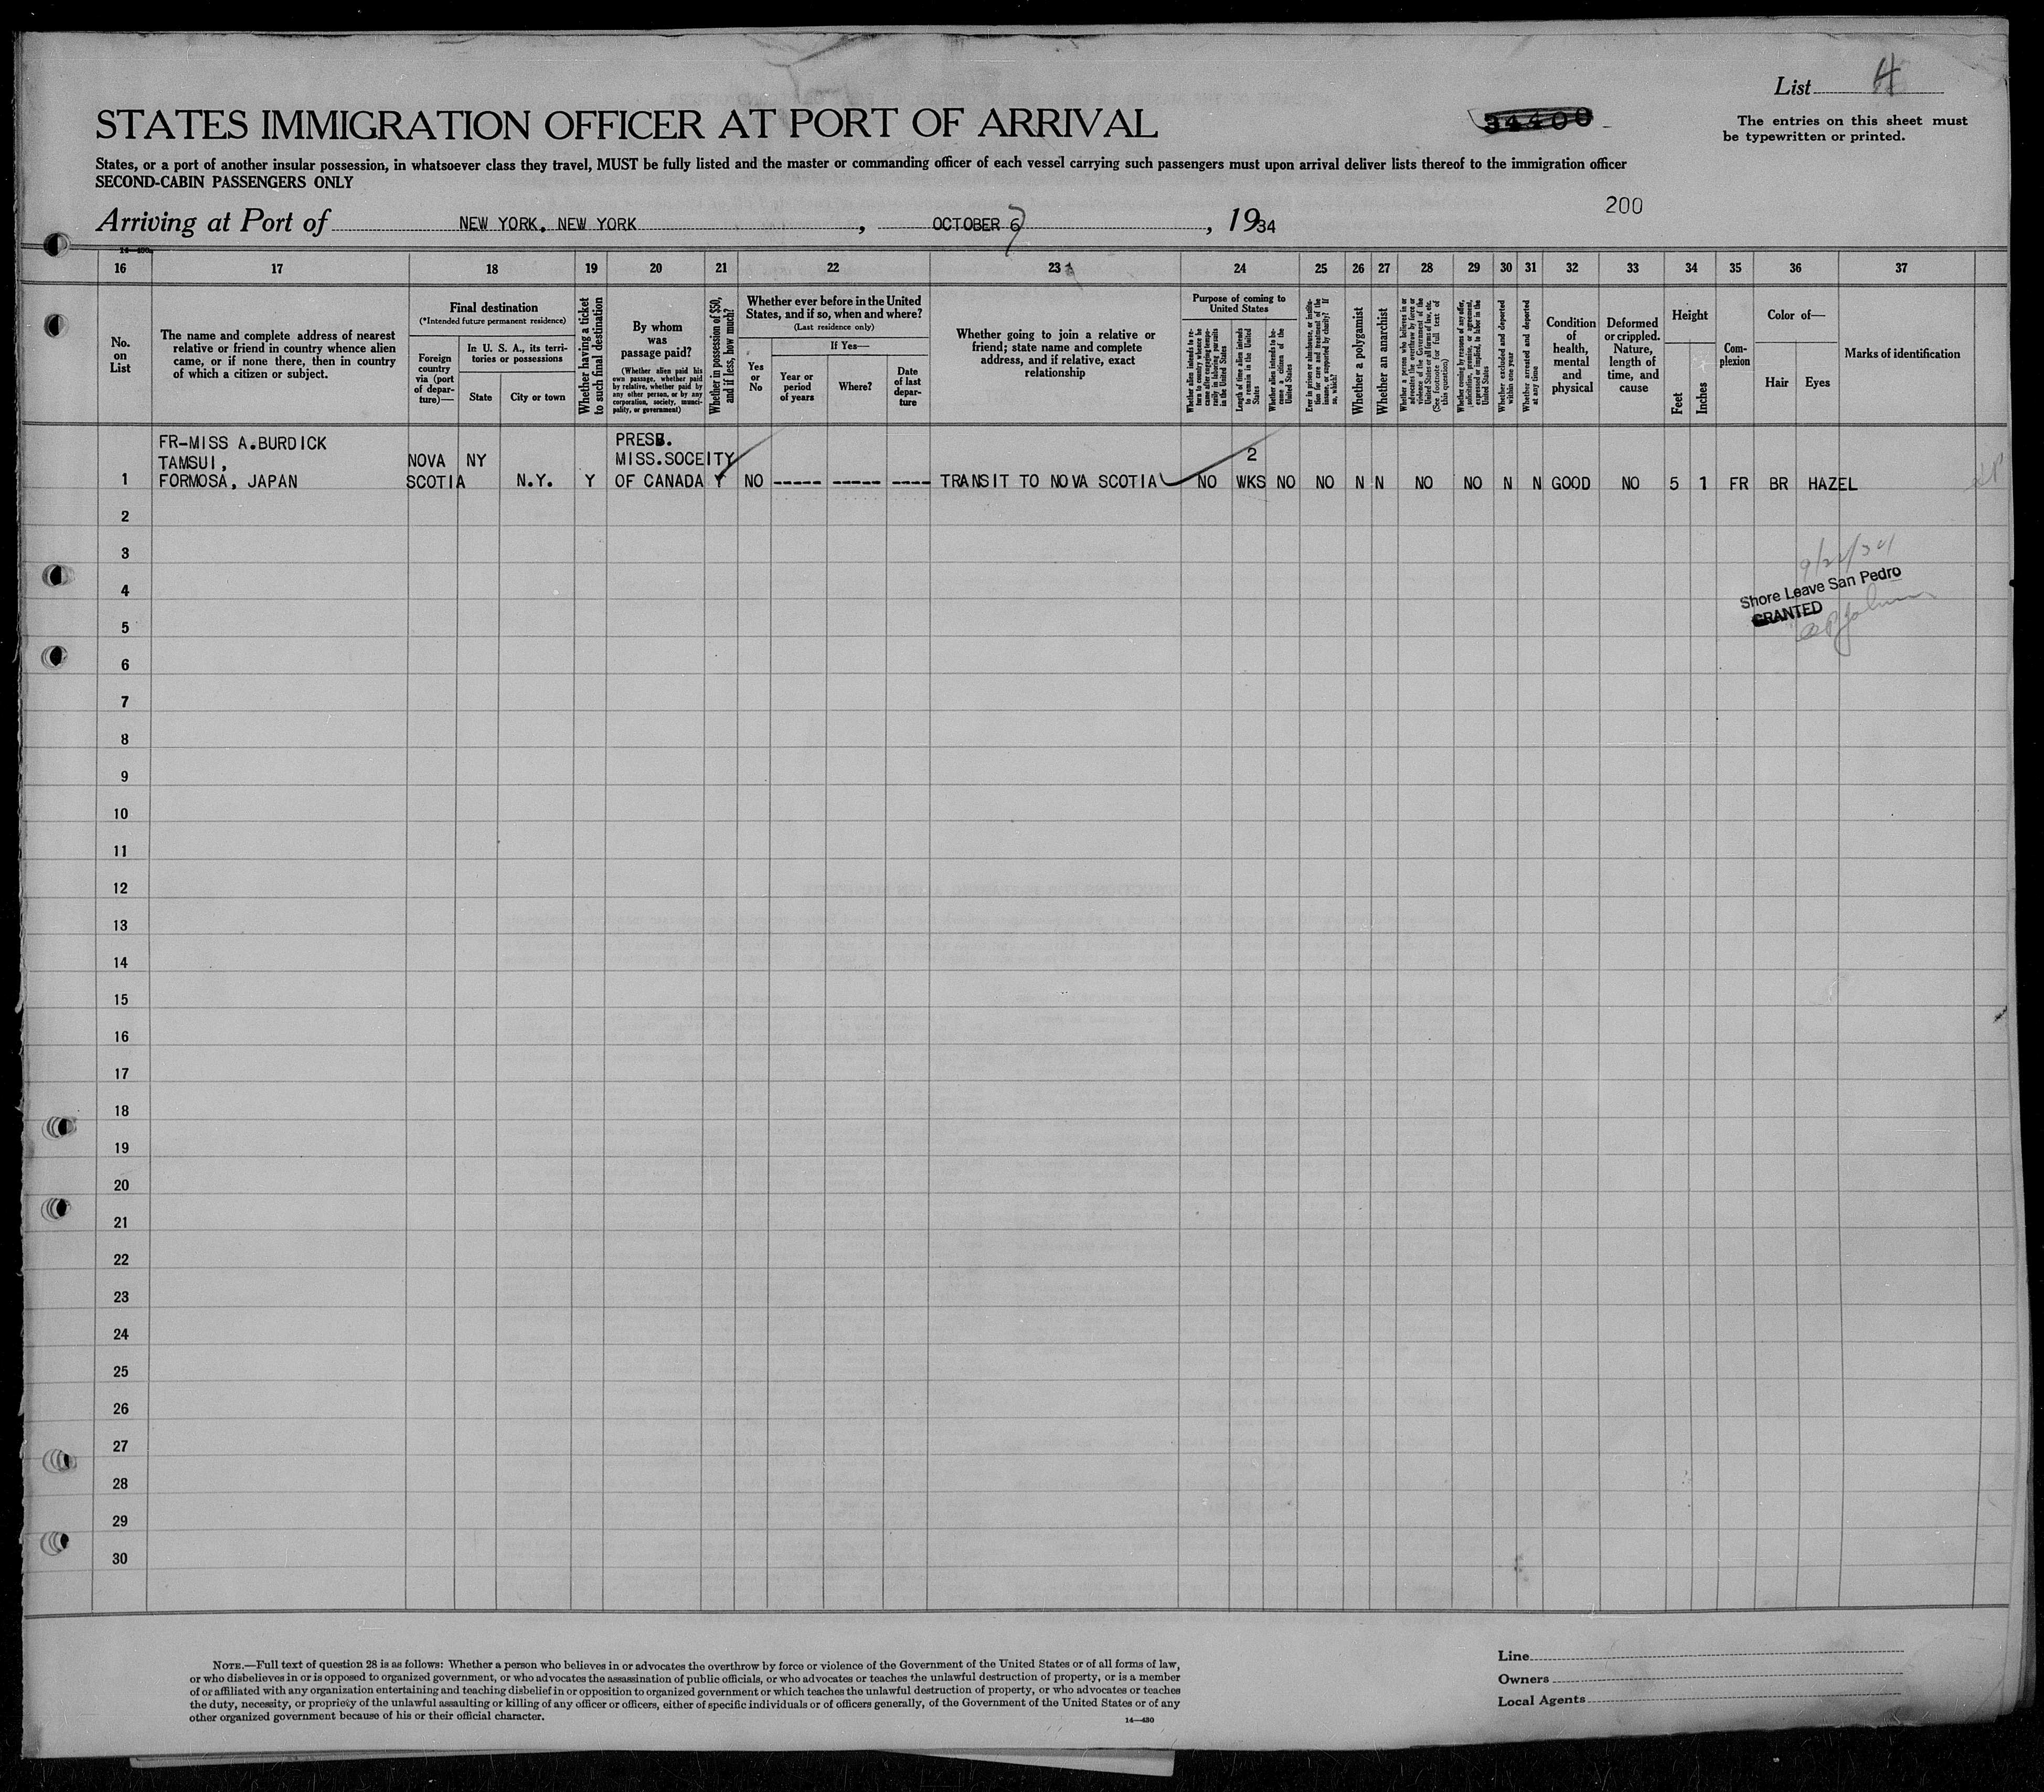 List 4
STATES IMMIGRATION OFFICER AT PORT OF ARRIVAL
34408
The entries on this sheet must
be typewritten or printed.
States, or a port of another insular possession, in whatsoever class they travel, MUST be fully listed and the master or commanding officer of each vessel carrying such passengers must upon arrival deliver lists thereof to the immigration officer
SECOND-CABIN PASSENGERS ONLY
200
Arriving at Port of NEW YORK, NEW YORK, OCTOBER 6 7, 1934
14—430
16 17 18 19 20 21 22 23 24 25 26 27 28 29 30 31 32 33 34 35 36 37
No. on List
The name and complete address of nearest
relative or friend in country whence alien
came, or if none there, then in country
of which a citizen or subject.
Final destination
(*Intended future permanent residence)
Foreign country via (port of departure)—
In U. S. A., its territories or possessions
State
City or town
Whether having a ticket to such final destination
By whom was passage paid?
(Whether alien paid his own passage, whether paid by relative, whether paid by any other person, or by any corporation, society, municipality, or government)
Whether in possession of $50, and if less, how much?
Whether ever before in the United States, and if so, when and where?
(Last residence only)
Yes or No
If Yes—
Year or period of years
Where?
Date of last departure
Whether going to join a relative or
friend; state name and complete
address, and if relative, exact
relationship
Purpose of coming to United States
Whether alien intends to return to country whence he came after engaging temporarily in laboring pursuits in the United States
Length of time alien intends to remain in the United States
Whether alien intends to become a citizen of the United States
Ever in prison or almshouse, or institution for care and treatment of the insane, or supported by charity? If so, which?
Whether a polygamist
Whether an anarchist
Whether a person who believes in or advocates the overthrow by force or violence of the Government of the United States or all forms of law, etc. (See footnote for full text of this question)
Whether coming by reasons of any offer, solicitation, promise, or agreement, expressed or implied, to labor in the United States
Whether excluded and deported within one year
Whether arrested and deported at any time
Condition of health, mental and physical
Deformed or crippled. Nature, length of time, and cause
Height
Feet
Inches
Complexion
Color of—
Hair
Eyes
Marks of identification
FR-MISS A.BURDICK PRESB.
TAMSUI, NOVA NY MISS.SOCEITY 2
1 FORMOSA, JAPAN SCOTIA N.Y. Y OF CANADA Y NO ----- ----- ---- TRANSIT TO NOVA SCOTIA NO WKS NO NO N N NO NO N N GOOD NO 5 1 FR BR HAZEL
2
3
4
5
6
7
8
9
10
11
12
13
14
15
16
17
18
19
20
21
22
23
24
25
26
27
28
29
30
Shore Leave San Pedro
GRANTED
NOTE.—Full text of question 28 is as follows: Whether a person who believes in or advocates the overthrow by force or violence of the Government of the United States or of all forms of law,
or who disbelieves in or is opposed to organized government, or who advocates the assassination of public officials, or who advocates or teaches the unlawful destruction of property, or is a member
of or affiliated with any organization entertaining and teaching disbelief in or opposition to organized government or which teaches the unlawful destruction of property, or who advocates or teaches
the duty, necessity, or propriety of the unlawful assaulting or killing of any officer or officers, either of specific individuals or of officers generally, of the Government of the United States or of any
other organized government because of his or their official character.
14—430
Line
Owners
Local Agents